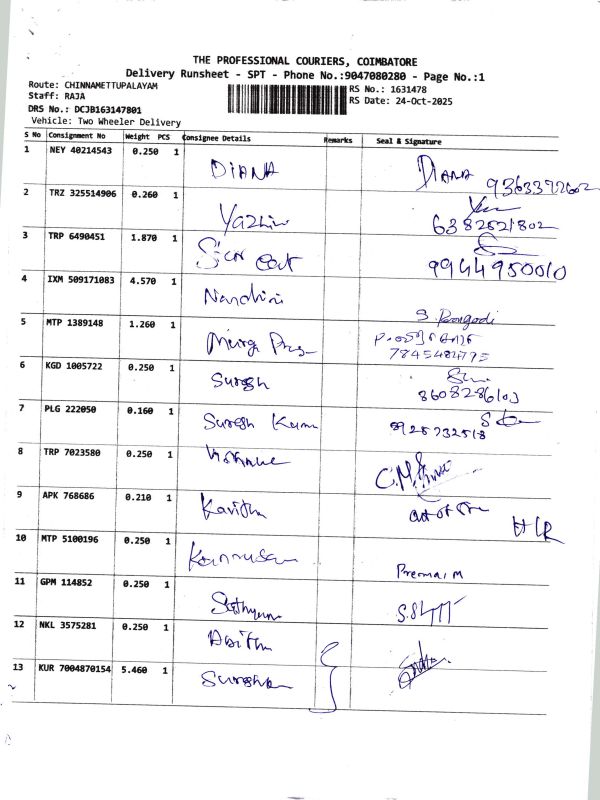 THE PROFESSIONAL COURIERS, COIMBATORE
Delivery Runsheet - SPT - Phone No.:9047080280 - Page No.:1
Route: CHINNAMETTUPALAYAM
Staff: RAJA
DRS No.: DCJB163147801
Vehicle: Two Wheeler Delivery
RS No.: 1631478
RS Date: 24-Oct-2025
S No Consignment No Weight PCS Consignee Details Remarks Seal & Signature
1 NEY 40214543 0.250 1
DIANA DIANA 9363372602
2 TRZ 325514906 0.260 1
Yazhin 6382521802
3 TRP 6490451 1.870 1
9944950010
4 IXM 509171083 4.570 1
Nandhini
5 MTP 1389148 1.260 1
S. Poongodi
7845484775
6 KGD 1005722 0.250 1
Suresh 8608286103
7 PLG 222050 0.160 1
Suresh Kumar 8925732518
8 TRP 7023580 0.250 1
9 APK 768686 0.210 1
Kavitha out of
10 MTP 5100196 0.250 1
Premai M
11 GPM 114852 0.250 1
12 NKL 3575281 0.250 1
13 KUR 7004870154 5.460 1